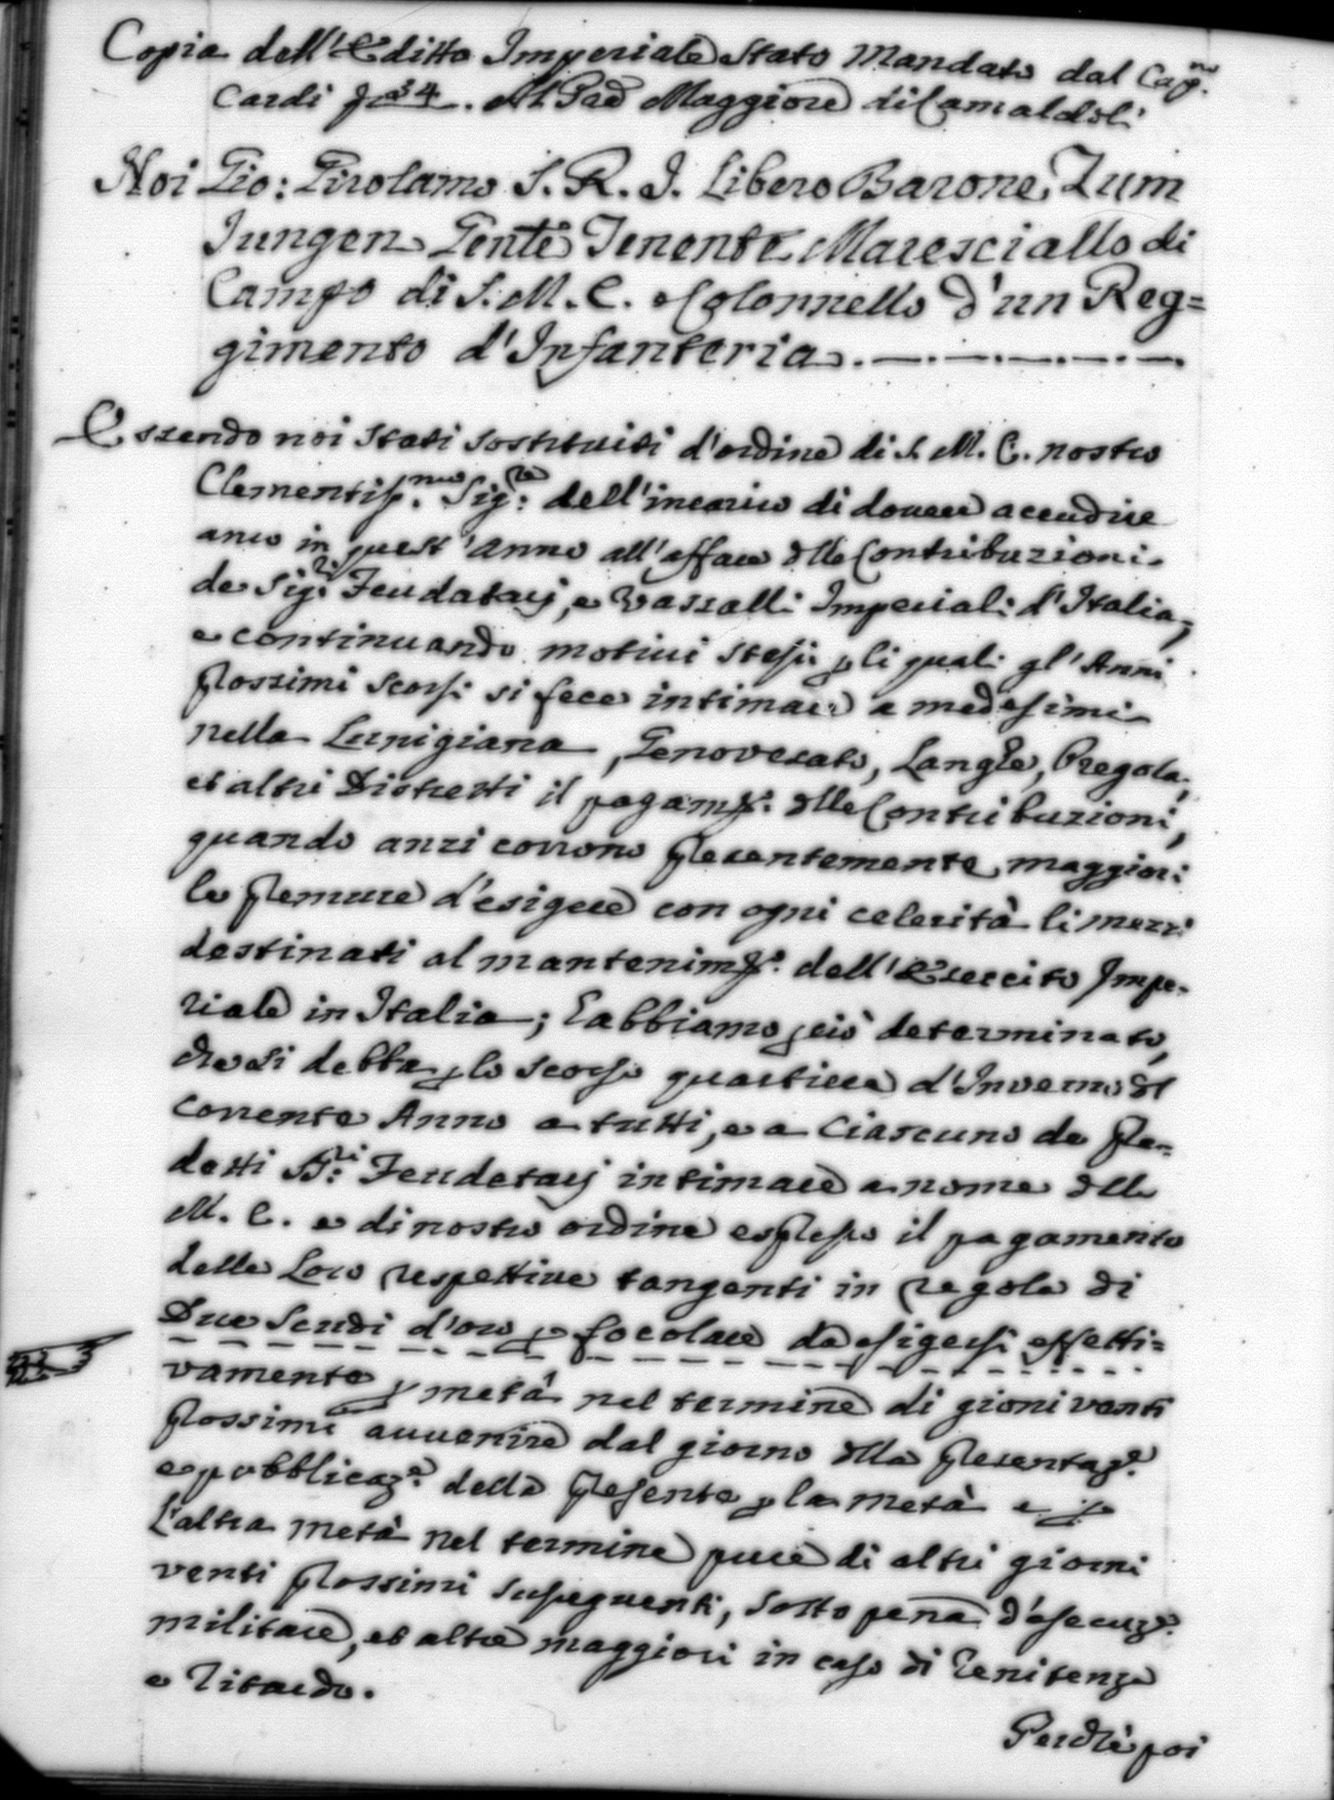 Copia dell'Editto Imperiale Stato Mandato dal Cap.no
Cardi 34. Al Pad Maggiore di Camaldoli
Noi Gio: Girolamo S. R. I. Libero Barone Zum
Jungen Gente Tenente Maresciallo di
Campo di S. M. C. e Colonnello d'un Reg=
gimento d'Infanteria.
Essendo noi stati sostituiti d'ordine di S. M. C. nostro
Clementiss.mo Sig.re dell'incarico di dovere accudire
anco in quest'anno all'affare dlle Contribuzioni
de Sig.ri Feudatarj, e Vassalli Imperiali d'Italia,
e continuando motivi stessi p li quali gl'Anni
prossimi scorsi si fece intimare a medesimi
nella Lunigiana, Genovesato, Langhe, Pregola,
et altri Distretti il pagam.to dlle Contribuzioni,
quando anzi corrono presentemente maggiori
le premure d'esigere con ogni celerità li mezzi
destinati al mantenim.to dell'Esercito Impe-
riale in Italia; Habbiamo p ciò determinato,
che si debba p lo scorso quartiere d'Inverno dl
corrente Anno a tutti, e a ciascuno de pre-
detti SS.ri Feudetarj intimare a nome dlla
M. C. e di nostro ordine espresso il pagamento
delle Loro respettive tangenti in regola di
Due Scudi d'oro p focolare da esigersi effetti=
vamente p metà nel termine di giorni venti
prossimi avvenire dal giorno dlla presentaz.e
e pubblicaz.e della presente p la metà e p
L'altra metà nel termine pure di altri giorni
venti prossimi susseguenti, sotto pena d'esecuz.e
militare, et altre maggiori in caso di renitenza
e ritardo.
Perchè poi